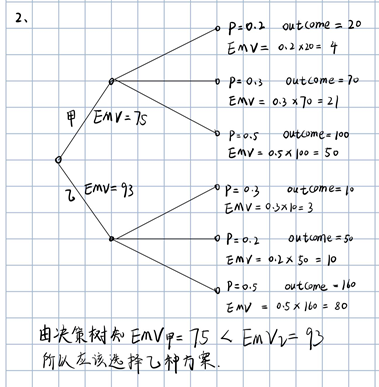 2、
P=0.2 outcome=20
EMV= 0.2×20= 4
P=0.3 outcome=70
EMV = 0.3×70=21
甲 EMV=75
P=0.5 outcome=100
EMV=0.5×100=50
乙 EMV=93
P=0.3 outcome=10
EMV=0.3×10=3
P=0.2 outcome=50
EMV=0.2×50=10
P=0.5 outcome=160
EMV = 0.5×160=80
由决策树知 EMV甲=75 < EMV乙=93
所以应该选择乙种方案.